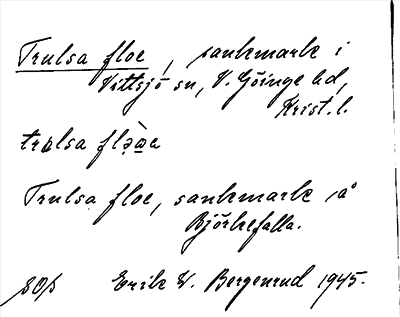 Trulsa floe, sankmark i
Vittsjö sn, V. Göinge hd,
Krist. l.
Trulsa floe, sankmark å
Björkefalla.
Erik W. Bergenrud 1945.